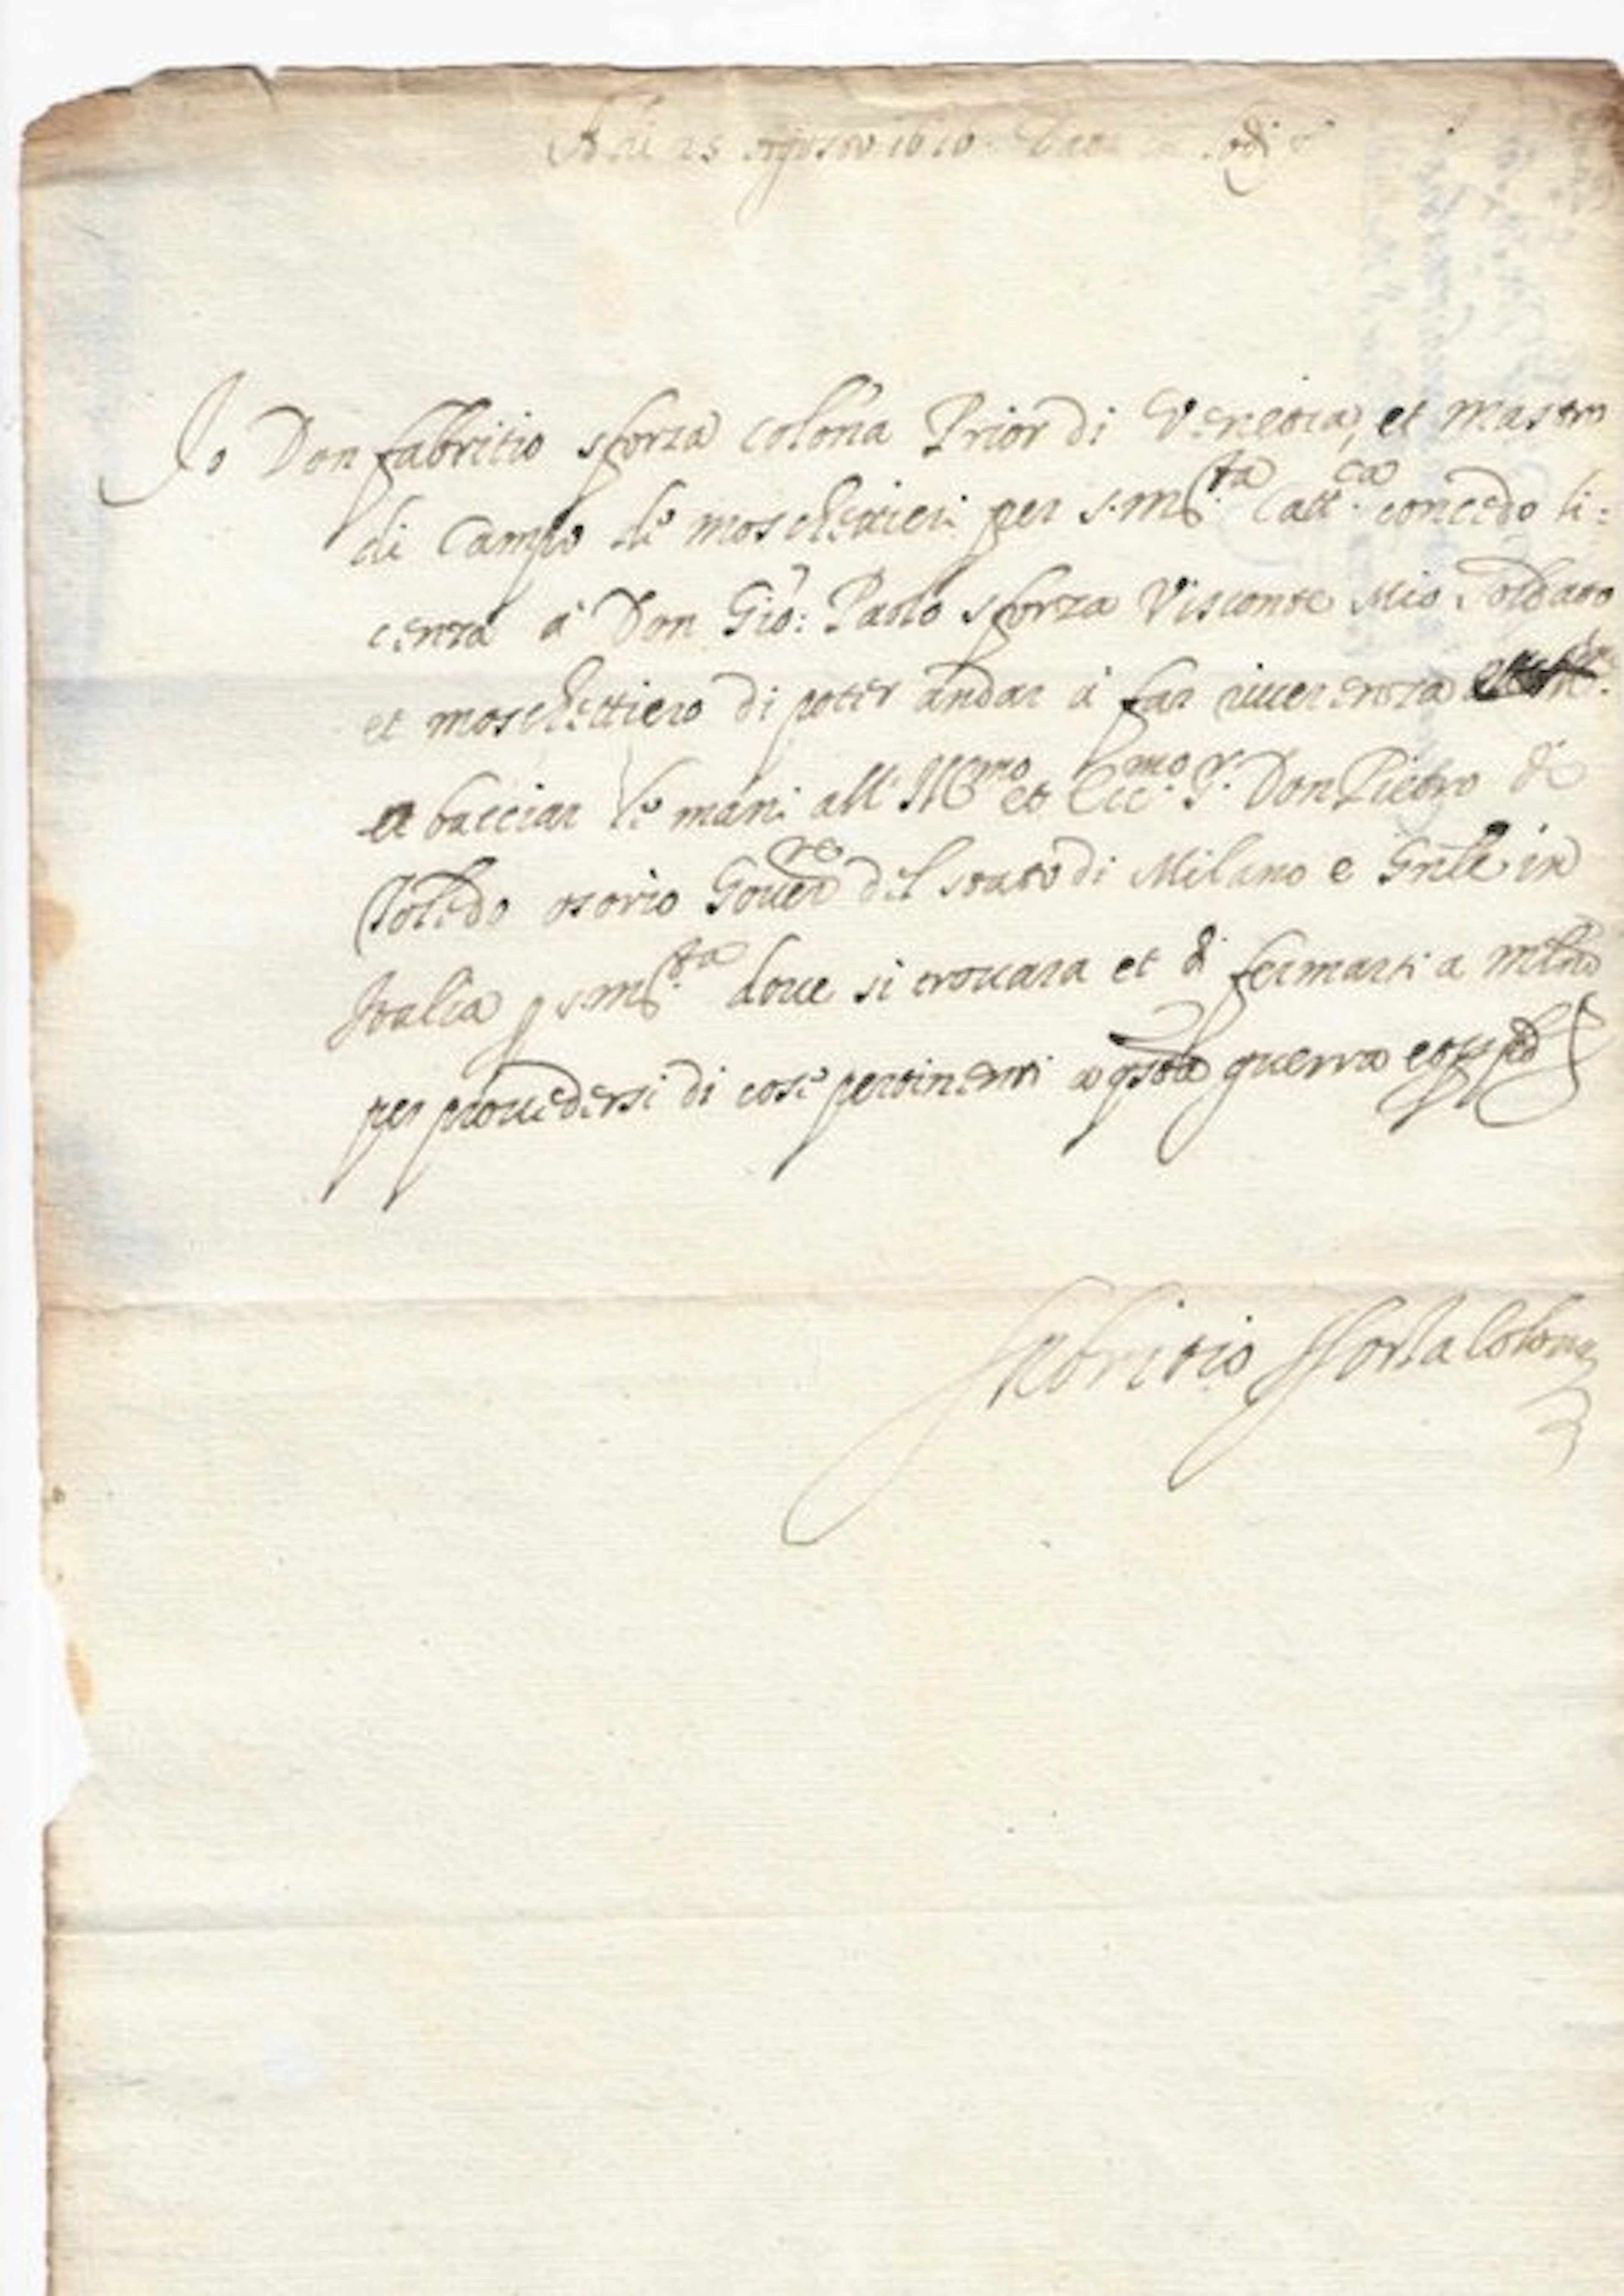 Adi 25 Agosto 1616
Io Don fabritio sforza colona Prior di Venetia, et mastro
di Campo de moschettieri per s. M.ta Catt.ca concedo li=
cenza à Don Gio: Paolo sforza Visconte Mio soldato
et moschettiero di poter andar à far riverenza
et basciar le mani all' Ill.mo et Ecc.mo S.r Don Pietro de
Toledo osorio Gover.re del stato di Milano e Gnle in
Italia p s. M.ta dove si trovara et di fermarsi a mlno
per provedersi di cose pertinenti a qsta guerra
fabritio sforza Colona